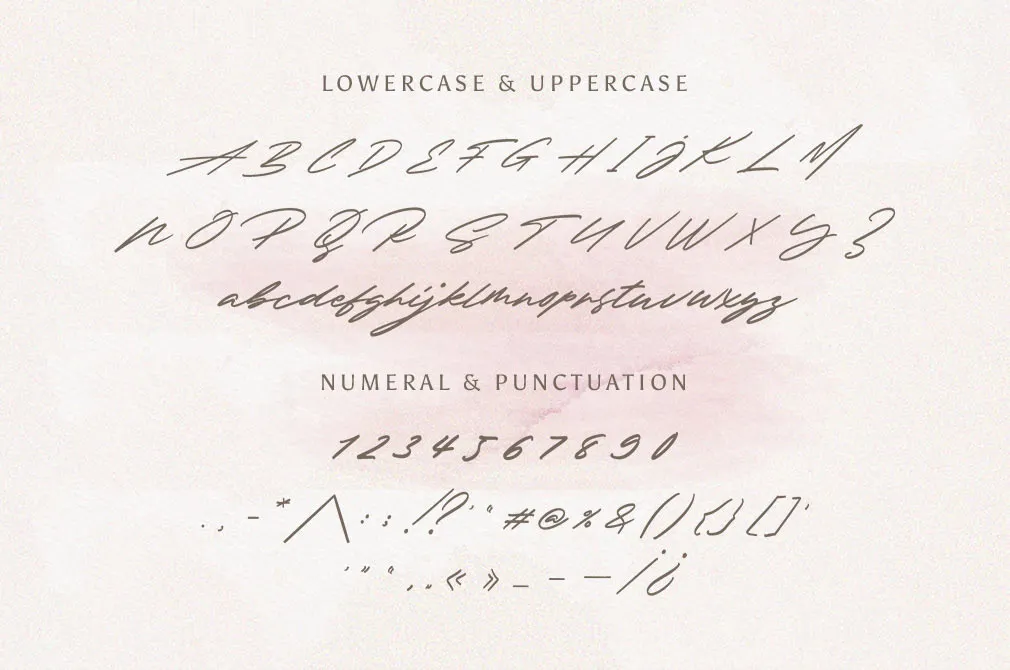 LOWERCASE & UPPERCASE
A B C D E F G H I J K L M
N O P Q R S T U V W X Y Z
abcdefghijklmnopqrstuvwxyz
NUMERAL & PUNCTUATION
1 2 3 4 5 6 7 8 9 0
. , - * / \ : ; . ! ? ' " # @ % & ( ) { } [ ] '
' " " , „ « » _ – — / ¿